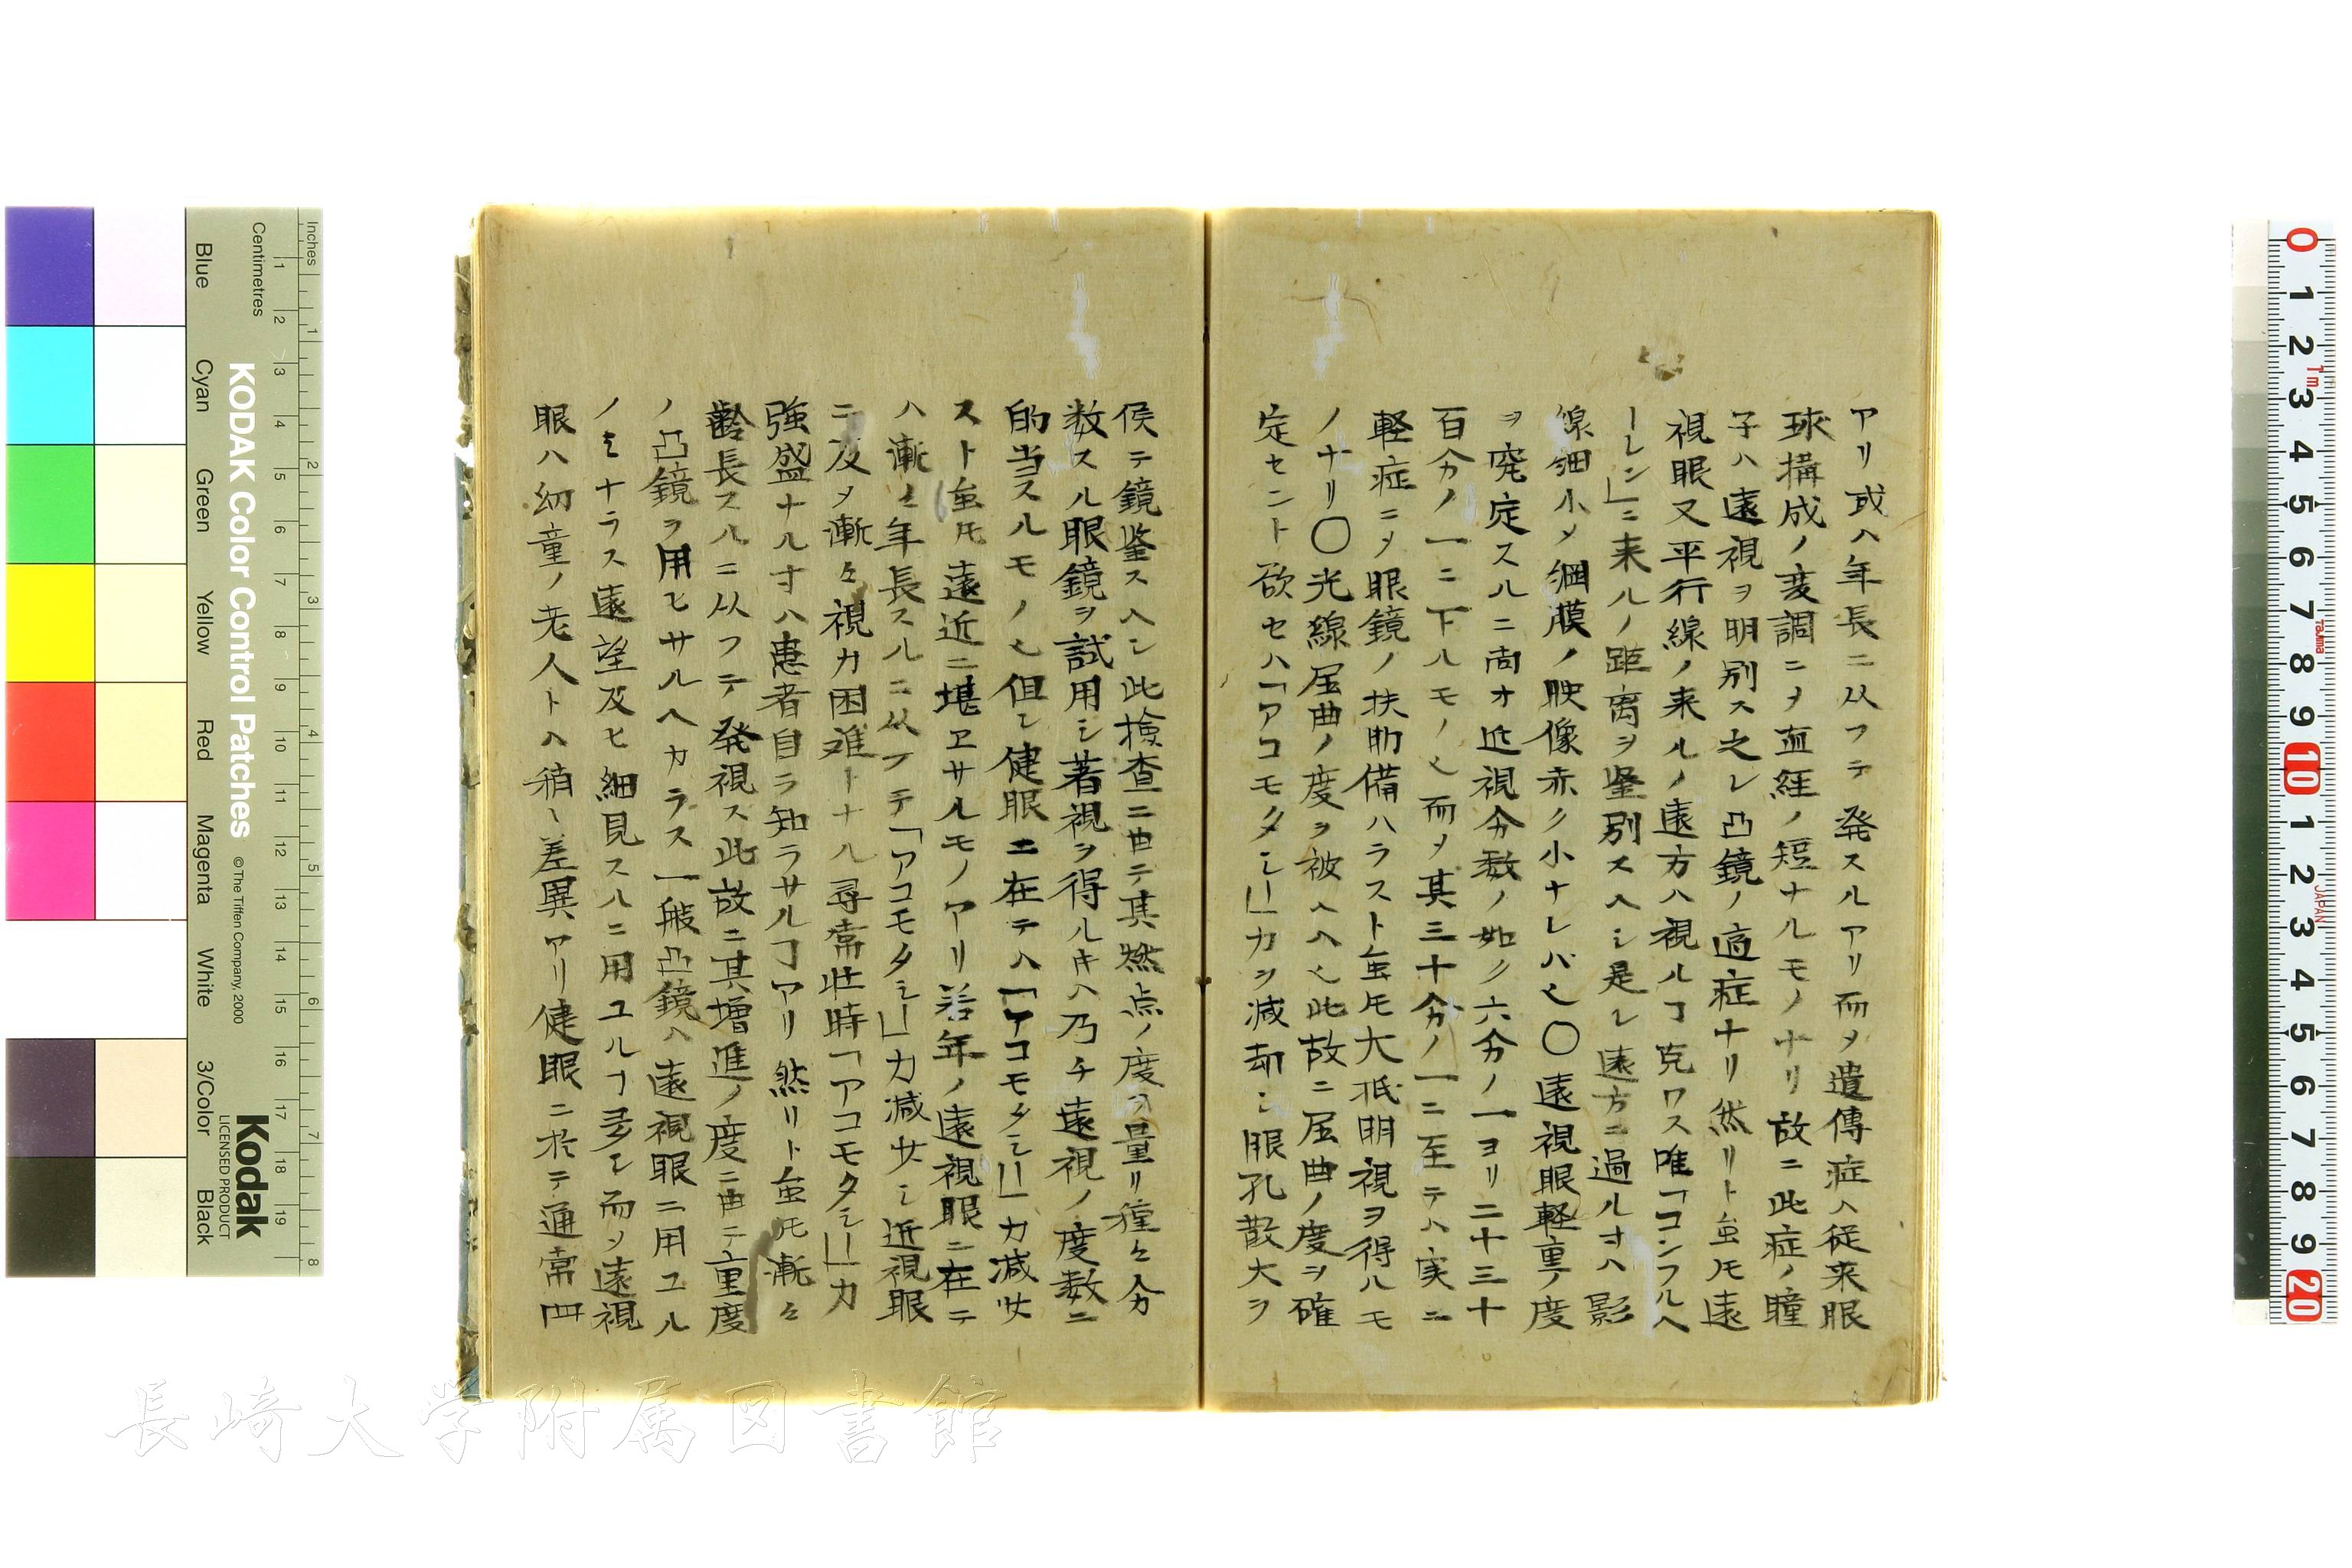 アリ或ハ年長ニ从フテ発スルアリ而メ遺傳症ハ従来眼
球搆成ノ変調ニメ直経ノ短ナルモノナリ故ニ此症ノ瞳
子ハ遠視ヲ明別ス之レ凸鏡ノ適症ナリ然リト虽モ遠
視眼又平行線ノ来ルノ遠方ハ視ルヿ克ワス唯「コンフルヘ
ーレン」ニ来ルノ距离ヲ鉴別スヘシ是レ遠方ニ過ルオハ影
線細小メ網膜ノ映像亦ク小ナレバ也〇遠視眼軽重ノ度
ヲ定スルニ尚オ近視分数ノ如ク六分ノ一ヨリ二十三十
百分ノ一ニ下ルモノ也而メ其三十分ノ一ニ至テハ実ニ
軽症ニメ眼鏡ノ扶助備ハラスト虽モ大抵明視ヲ得ルモ
ノナリ〇光線屈曲ノ度ヲ被ヘハ也此故ニ屈曲ノ度ヲ確
定セント欲セハ「アコモタシー」力ヲ減却シ眼孔散大ヲ
侯テ鏡鉴スヘシ此検査ニ由テ其燃点ノ度ヲ量リ種々分
数スル眼鏡ヲ試用シ著視ヲ得ルキハ乃チ遠視ノ度数ニ
的当スルモノ也但シ健眼ニ在テハ「アコモタシー」力減少
スト虽モ遠近ニ堪ヱサルモノアリ若年ノ遠視眼ニ在テ
ハ漸々年長スルニ从フテ「アコモタシー」力減少シ近視眼
ニ及メ漸々視力困难トナル尋常壮時「アコモタシー」力
強盛ナルオハ患者自ラ知ラサルヿアリ然リト虽モ漸々
齢長スルニ从フテ発視ス此故ニ其増進ノ度ニ由テ重度
ノ凸鏡ヲ用ヒサルヘカラス一般凸鏡ハ遠視眼ニ用ユル
ノミナラス遠望及ヒ細見スルニ用ユルヿ多シ而メ遠視
眼ハ幼童ノ老人トハ稍々差異アリ健眼ニ於テ通常四
Inches
Centimetres
KODAK Color Control Patches
© The Tiffen Company, 2000
Kodak
LICENSED PRODUCT
Blue
Cyan
Green
Yellow
Red
Magenta
White
3/Color
Black
長崎大学附属図書館